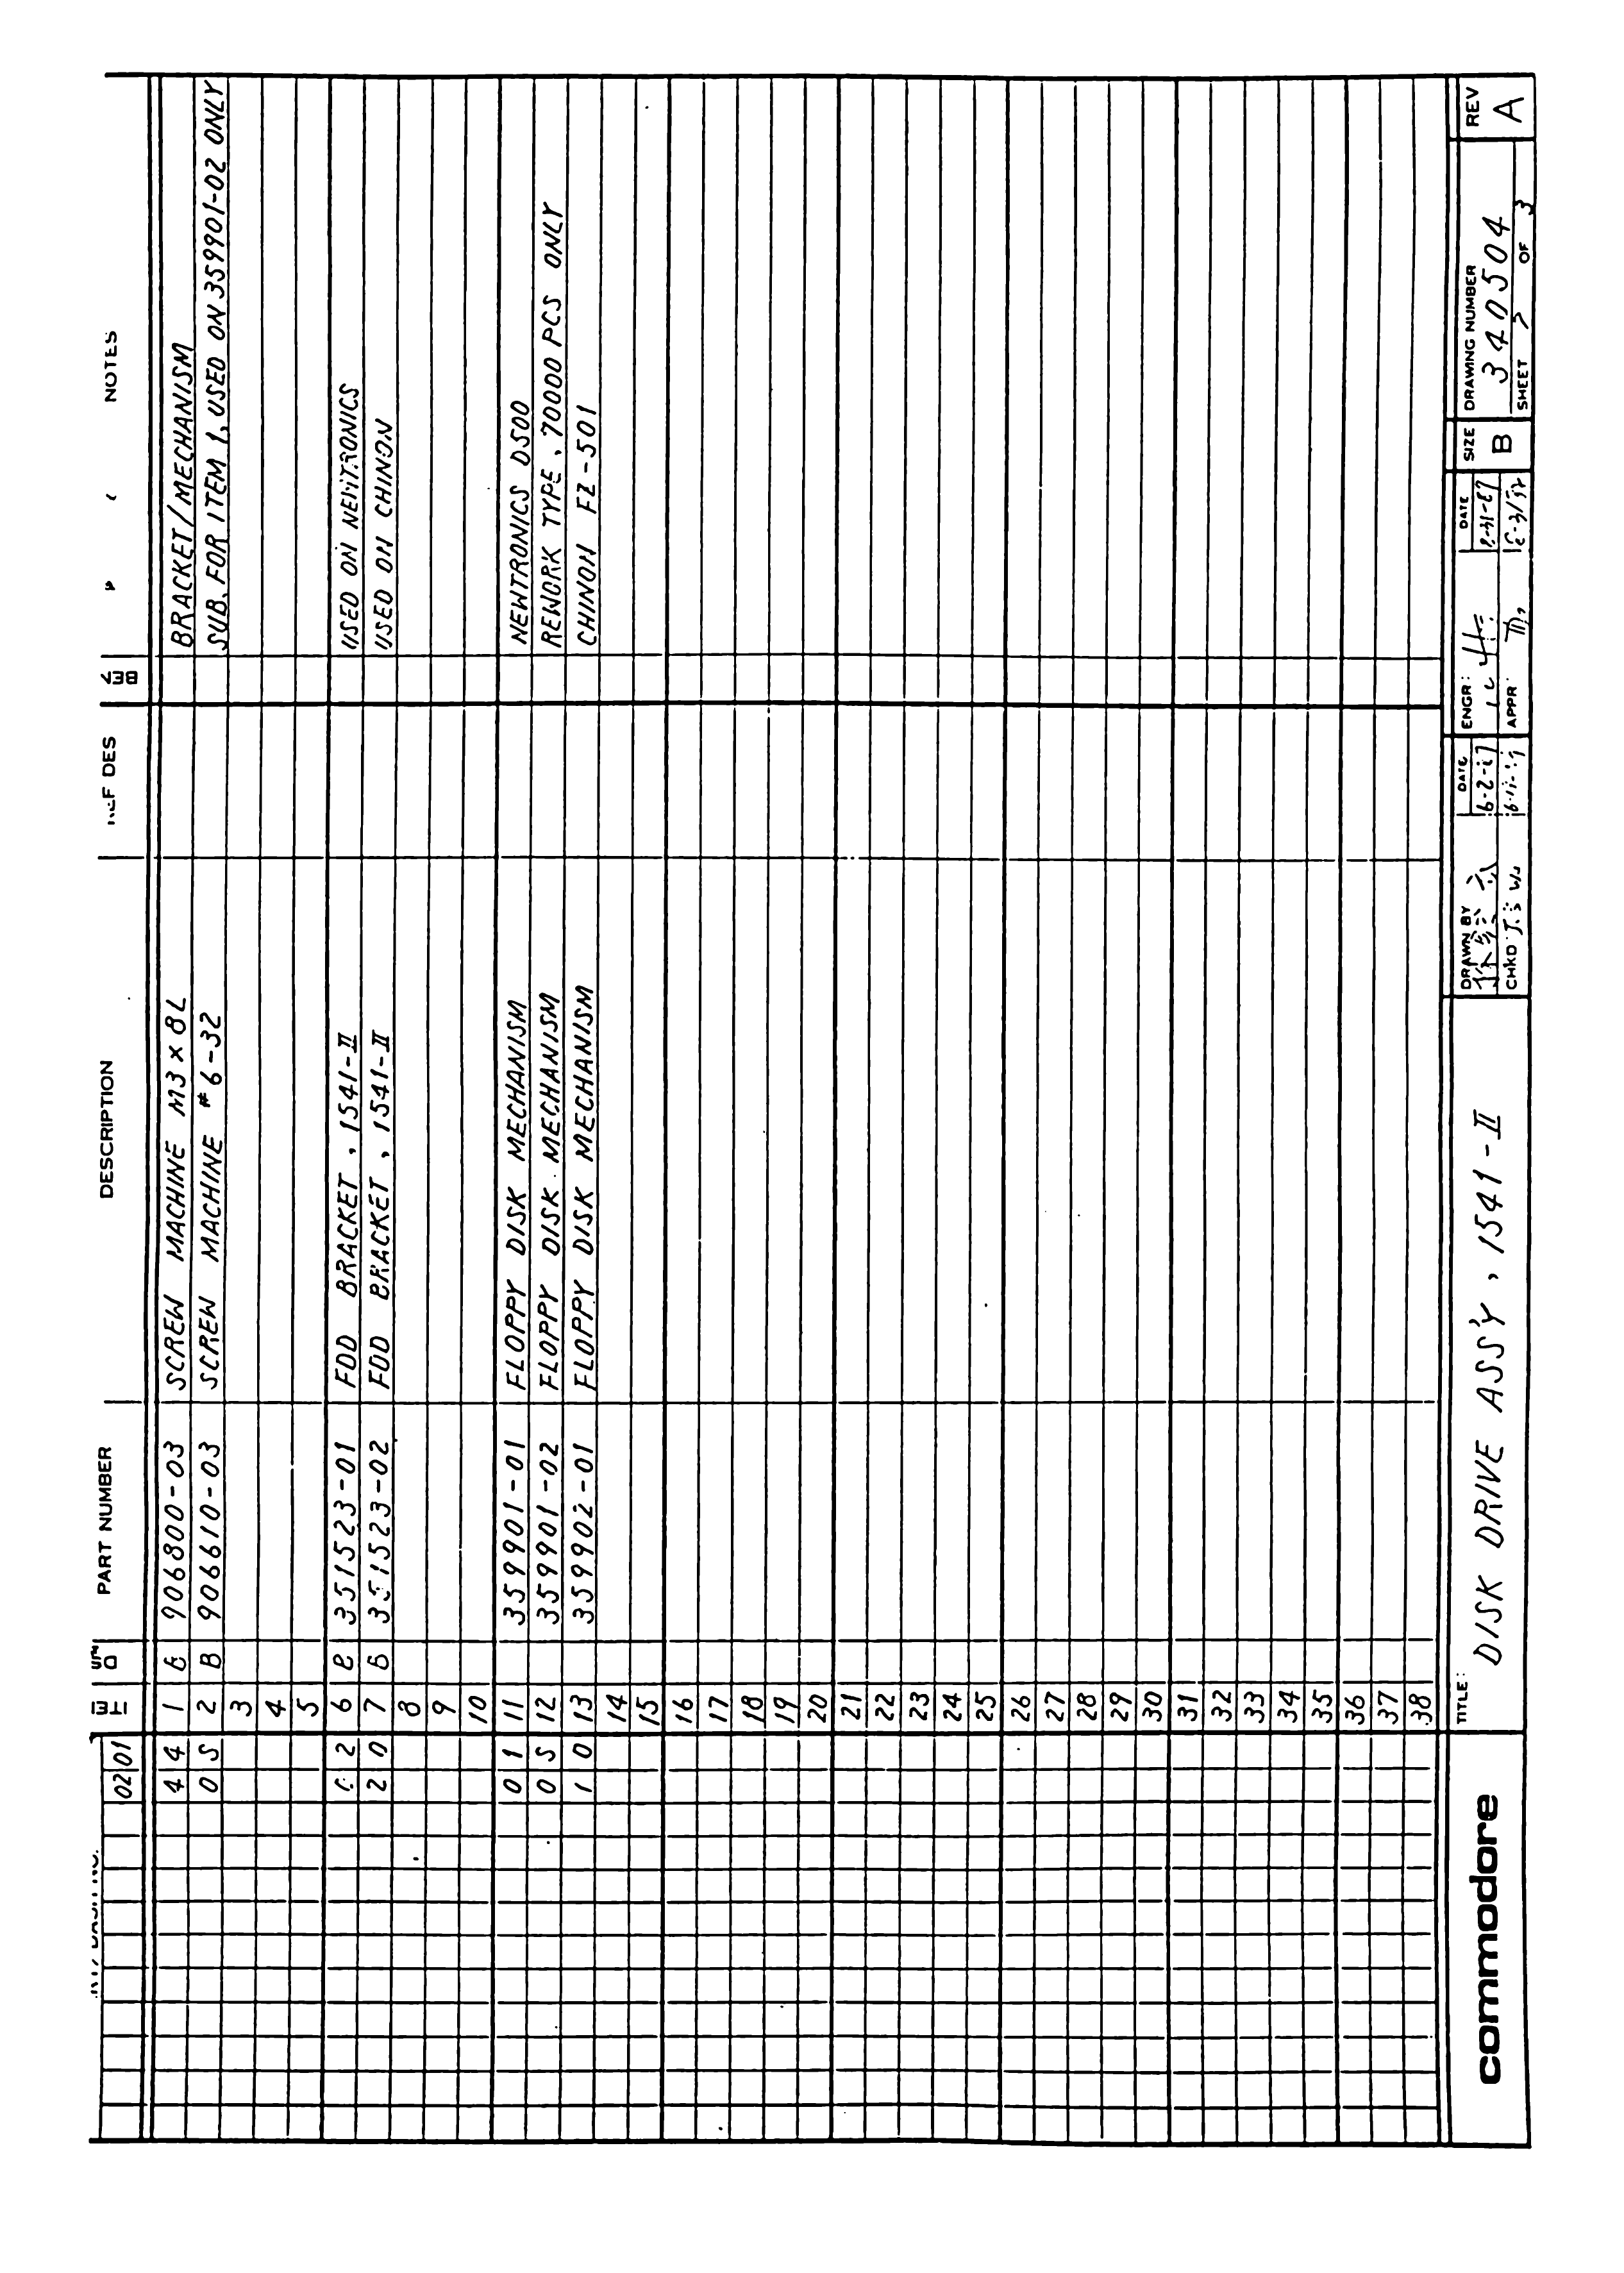 02 01 PART NUMBER DESCRIPTION DES REV NOTES
4 4 1 906800-03 SCREW MACHINE M3 x 8L BRACKET/MECHANISM
0 S 2 B 906610-03 SCREW MACHINE #6-32 SUB. FOR ITEM 1, USED ON 359901-02 ONLY
3
4
5
2 6 351523-01 FDD BRACKET, 1541-II USED ON NEWTRONICS
2 0 7 B 351523-02 FDD BRACKET, 1541-II USED ON CHINON
8
9
10
0 1 11 359901-01 FLOPPY DISK MECHANISM NEWTRONICS D500
0 S 12 359901-02 FLOPPY DISK MECHANISM REWORK TYPE, 70000 PCS ONLY
1 0 13 359902-01 FLOPPY DISK MECHANISM CHINON FZ-501
14
15
16
17
18
19
20
21
22
23
24
25
26
27
28
29
30
31
32
33
34
35
36
37
38
commodore
TITLE:
DISK DRIVE ASS'Y, 1541-II
DRAWN BY DATE
CHKD
ENGR: DATE
APPR
SIZE
B
DRAWING NUMBER
340504
SHEET OF 3
REV
A